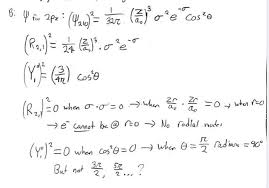 B. Ψ for 2pz : (Ψ210)² = 1/32π (Z/a₀)³ σ² e^-σ cos²θ
(R2,1)² = 1/24 (Z/a₀)³ · σ² e^-σ
(Y₁⁰)² = (3/4π) cos²θ
(R2,1)² = 0 when σ·σ = 0 → when Zr/a₀ · Zr/a₀ = 0 → when r=0
→ e⁻ cannot be @ r=0 → No radial nodes
(Y₁⁰)² = 0 when cos²θ = 0 → when θ = π/2 radians = 90°
But not 3π/2, 5π/2 ...?